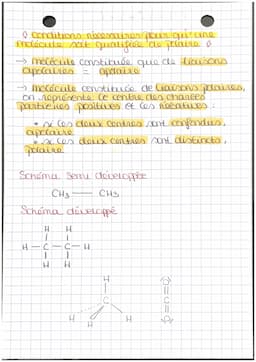 ◊ Conditions nécessaires pour qu'une
molécule soit qualifiée de polaire ◊
→ molécule constituée que de liaisons
apolaires = apolaire
→ molécule constituée de liaisons polaires,
on représente le centre des charges
partielles positives et les négatives :
• si les deux centres sont confondus,
apolaire
• si les deux centres sont distincts,
polaire
Schéma semi développée
CH₃ — CH₃
Schéma développé
H H
H - C - C - H
H H
H
C
H H H
O
C
O